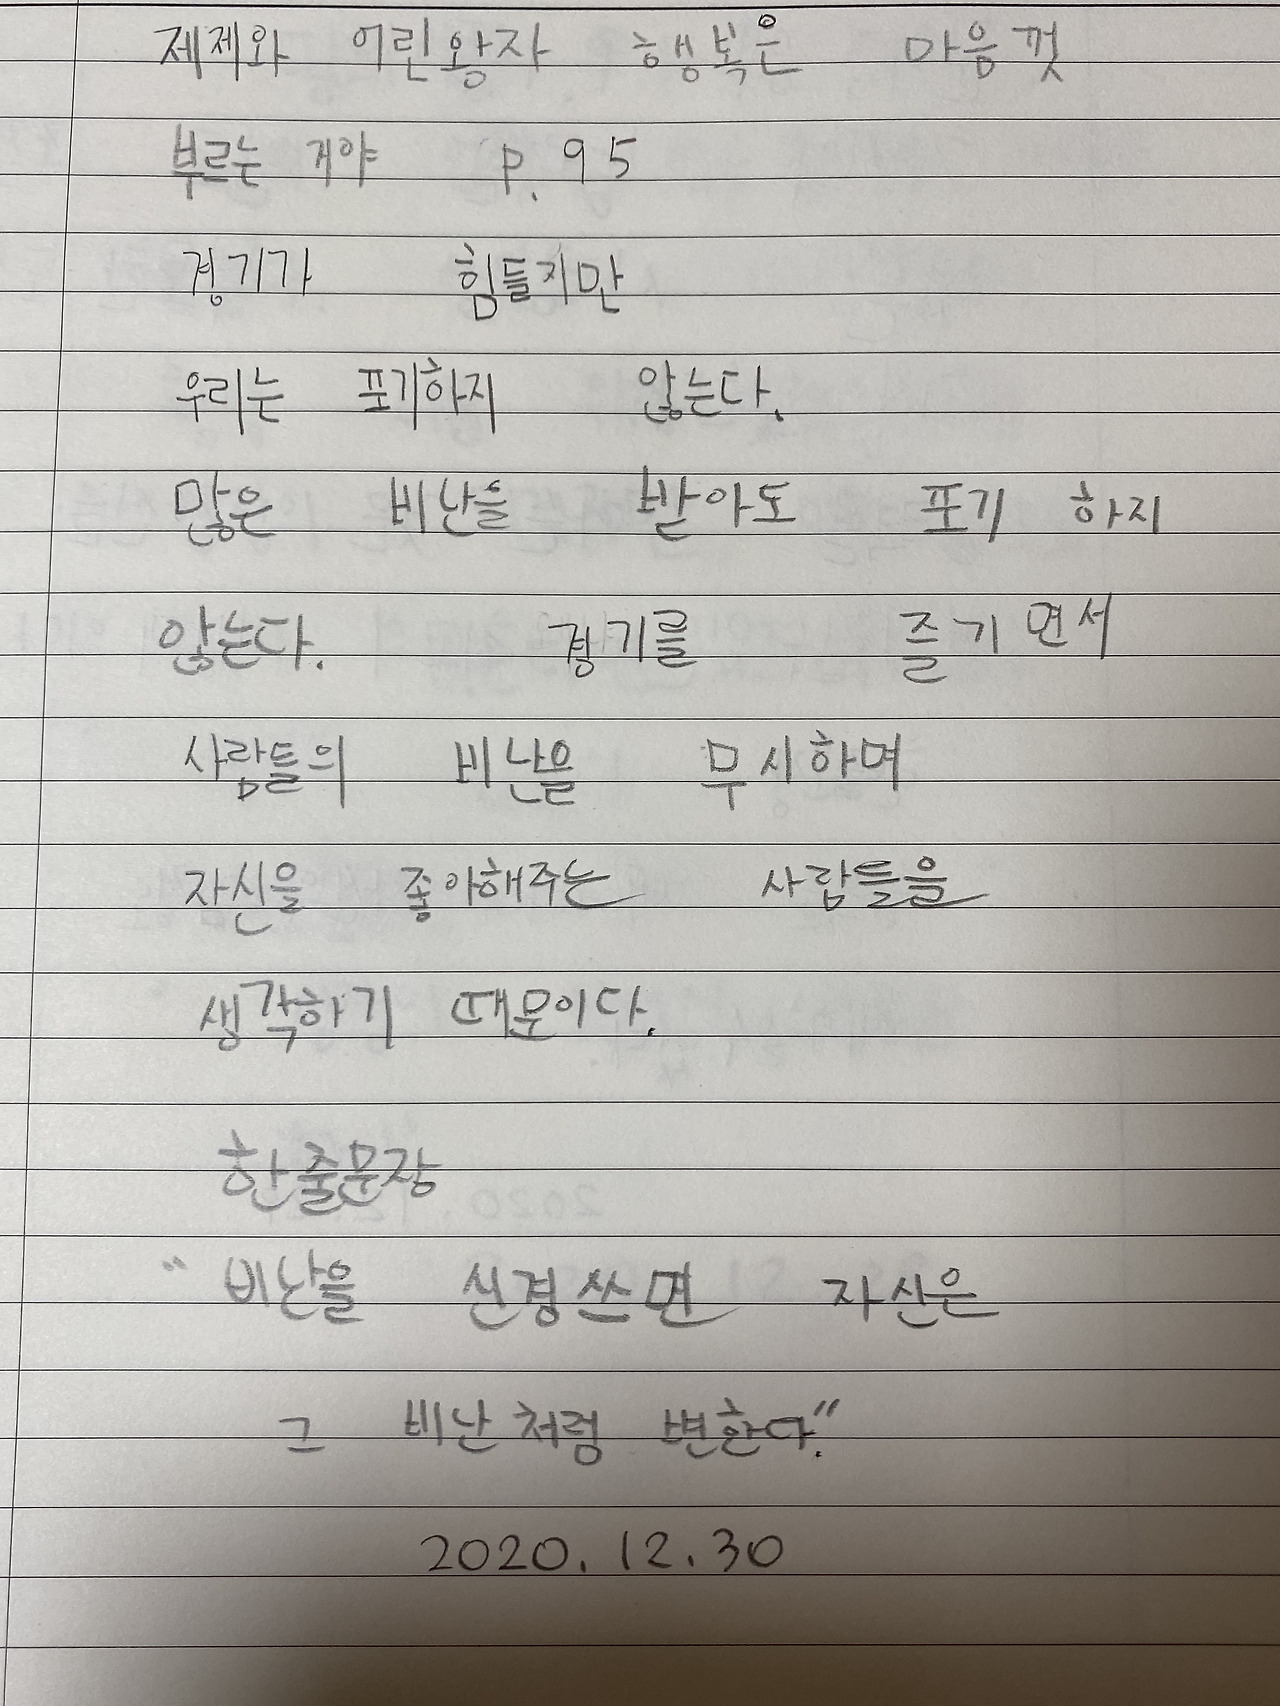 제제와 어린왕자 행복은 마음껏
부르는 거야 p.95
경기가 힘들지만
우리는 포기하지 않는다.
많은 비난을 받아도 포기 하지
않는다. 경기를 즐기면서
사람들의 비난을 무시하며
자신을 좋아해주는 사람들을
생각하기 때문이다.
한줄문장
"비난을 신경쓰면 자신은
그 비난처럼 변한다."
2020.12.30